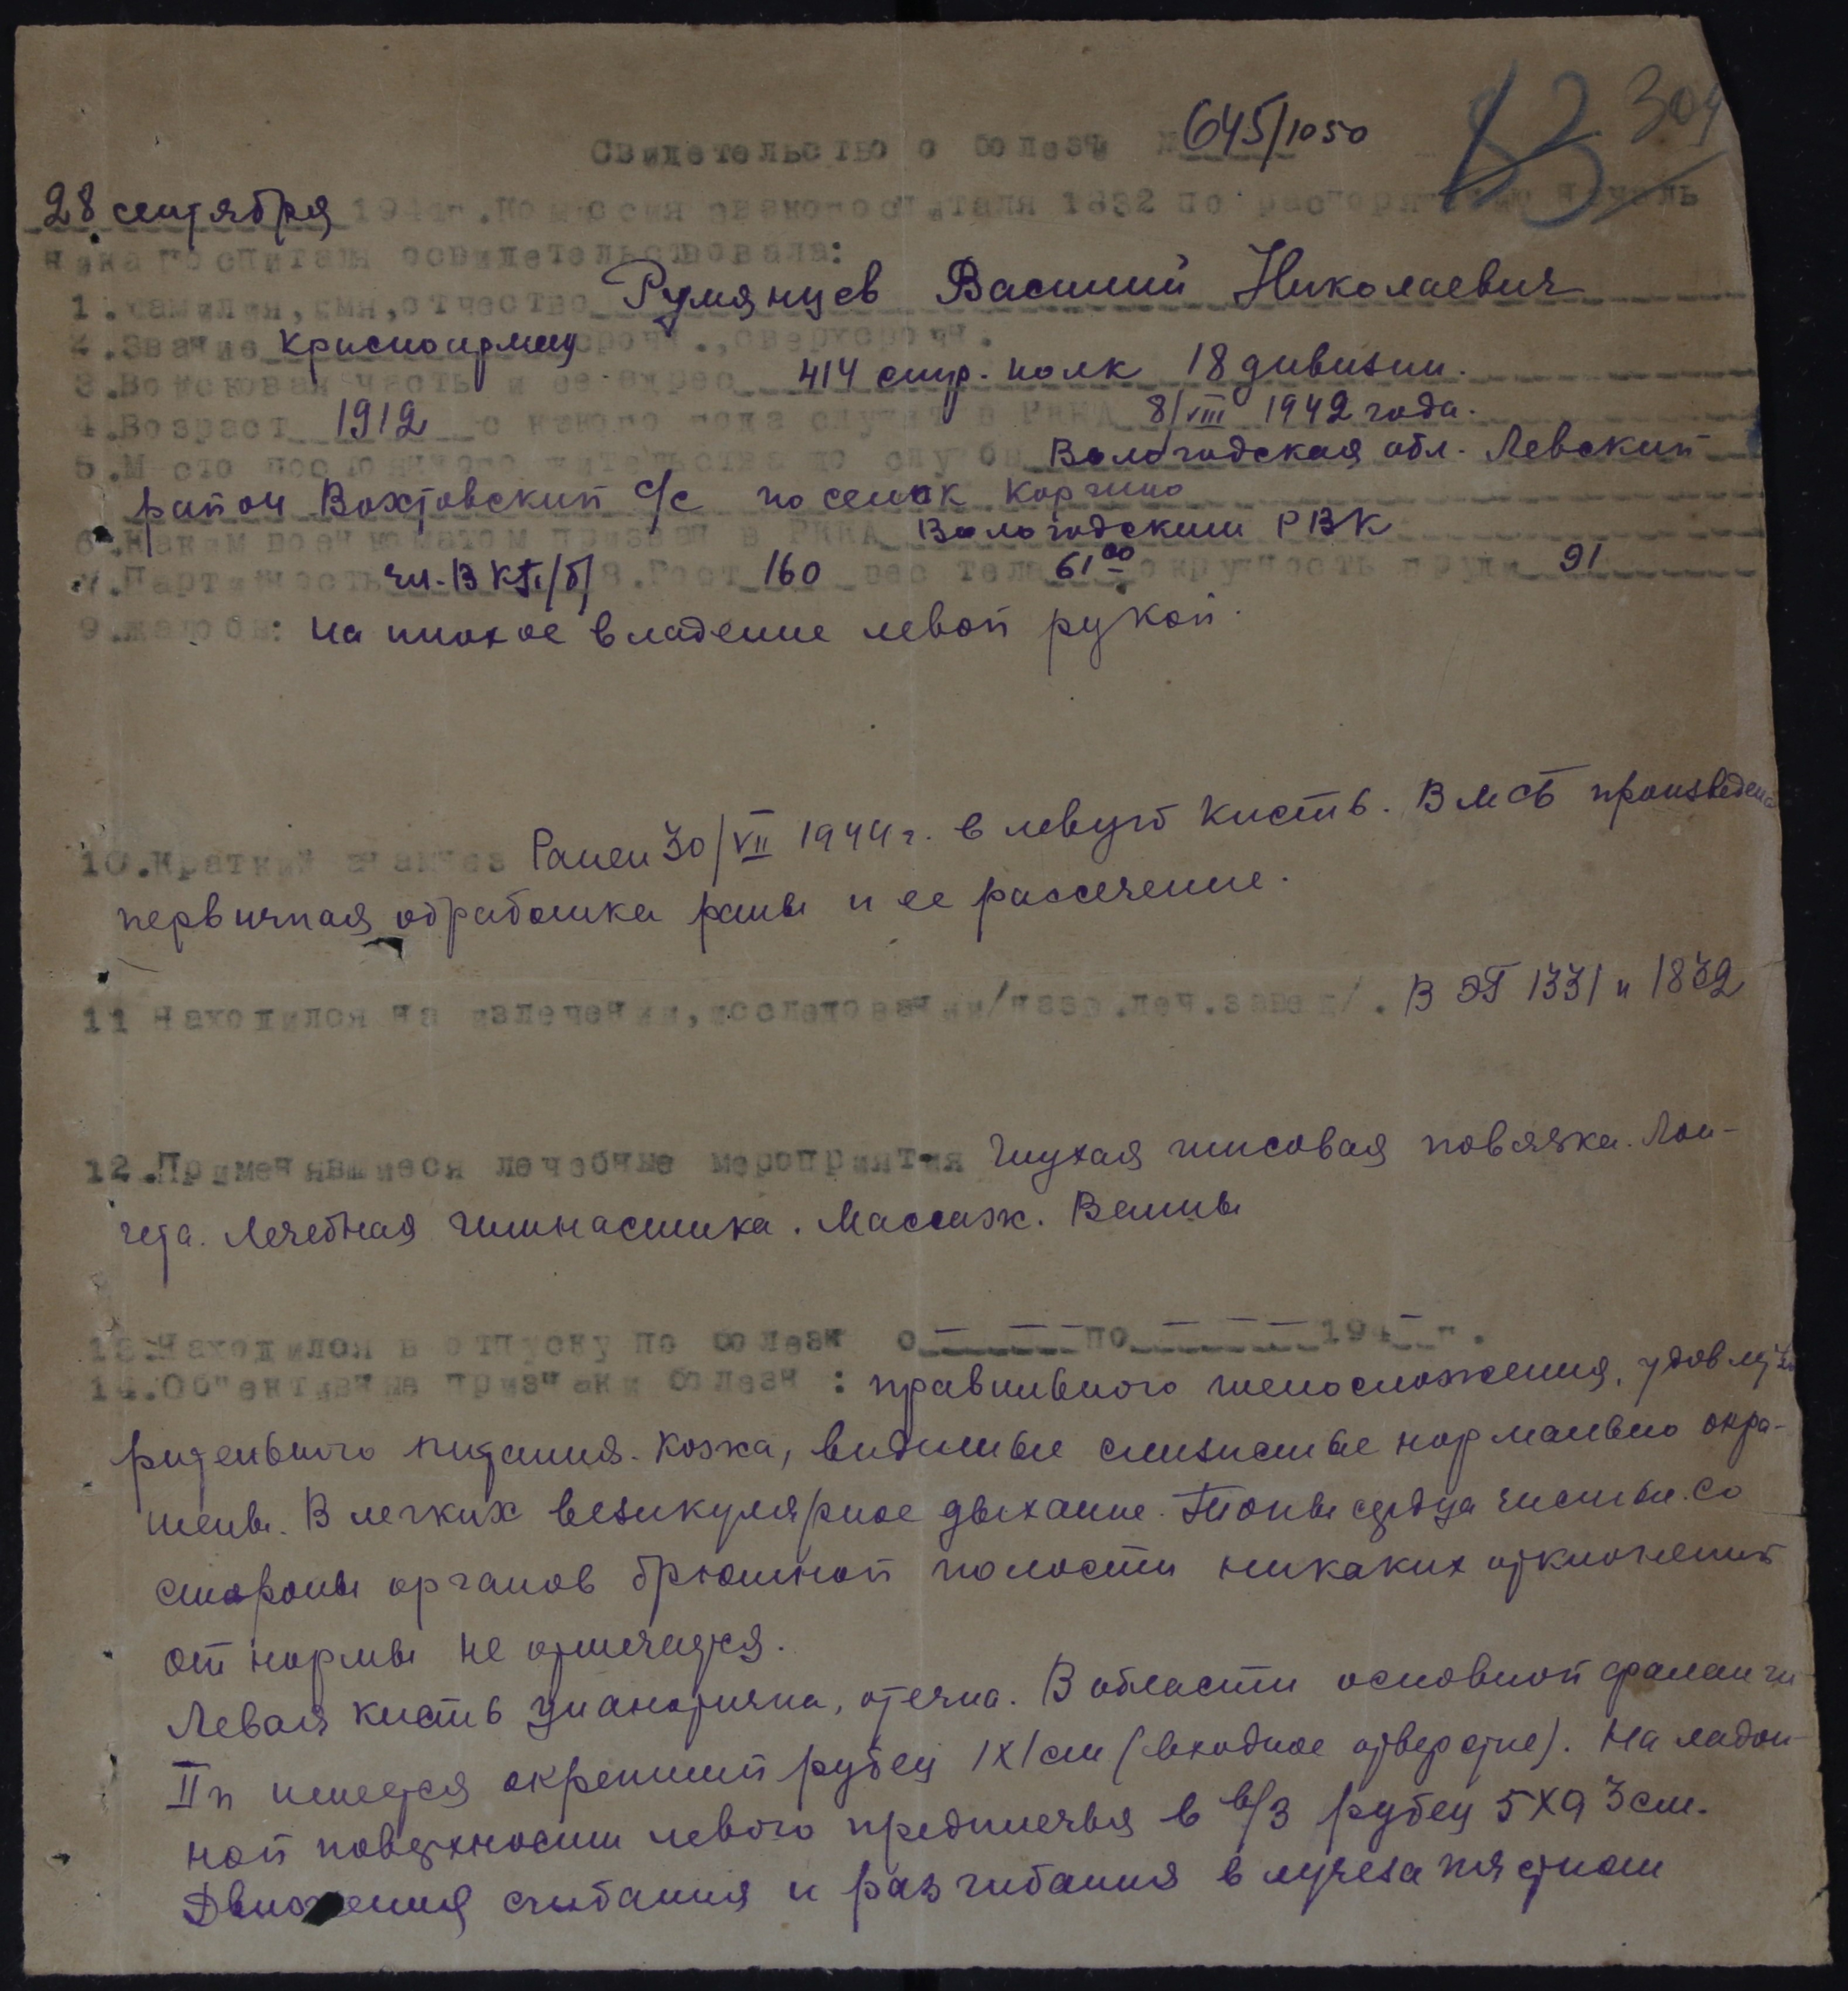 304
83
Свидетельство о болезни № 645/1050
28 сентября 1944г. Комиссия эвакогоспиталя 1832 по распоряжению началь
ника госпиталя освидетельствовала:
1. Фамилия, имя, отчество Румянцев Василий Николаевич
2. Звание красноармеец срочн., сверхсрочн.
3. Войсковая часть и ее адрес 414 стр. полк 18 дивизии.
4. Возраст 1912 с какого года служит в РККА 8/VIII 1942 года.
5. Место постоянного жительства до службы Вологодская обл. Левский
район Вохтовский с/с поселок
6. Каким военкоматом призван в РККА Вологодским РВК
7. Партийность чл. ВКП/б/ 8. Рост 160 вес тела 61⁰⁰ окружность груди 91
9. жалобы: на плохое владение левой рукой.
10. Краткий анамнез Ранен 30/VII 1944 г. в левую кисть. В МСБ произведена
первичная обработка раны и ее рассечение.
11 Находился на излечении, исследовании/назв. леч. завед/. В ЭГ 1331 и 1832
12. Применявшиеся лечебные мероприятия Глухая гипсовая повязка. Лон-
гета. Лечебная гимнастика. Массаж. Ванны
13. Находился в отпуску по болезни с по 194 г.
14. Об"ективные признаки болезни: правильного телосложения, удовлетво
рительного питания. Кожа, видимые слизистые нормально окра-
шены. В легких везикулярное дыхание. Тоны сердца чистые. Со
стороны органов брюшной полости никаких отклонений
от нормы не отмечается.
Левая кисть цианотична, отечна. В области основной фаланги
II п имеется окрепший рубец 1х1 см (входное отверстие). На ладон-
ной поверхности левого предплечья в в/3 рубец 5х0 3 см.
Движения сгибания и разгибания в лучезапястном